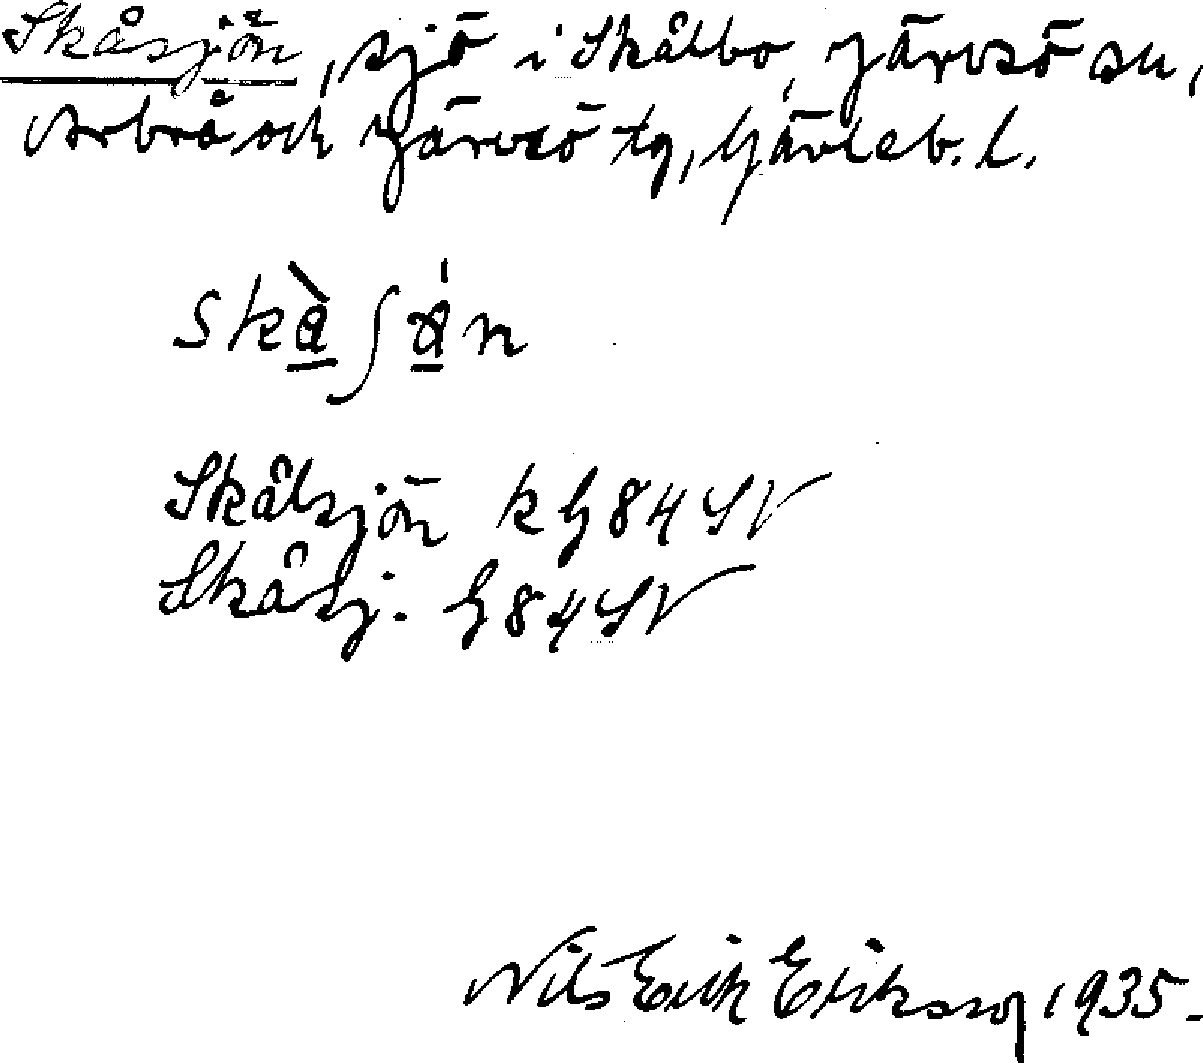 Skåsjön, sjö i Skålbo, Järvsö sn,
Arbrå och Järvsö tg, Gävleb. l.
Skålsjön k G 84 SV
Skålsj. G 84 SV
Nils Erik Eriksson 1935.